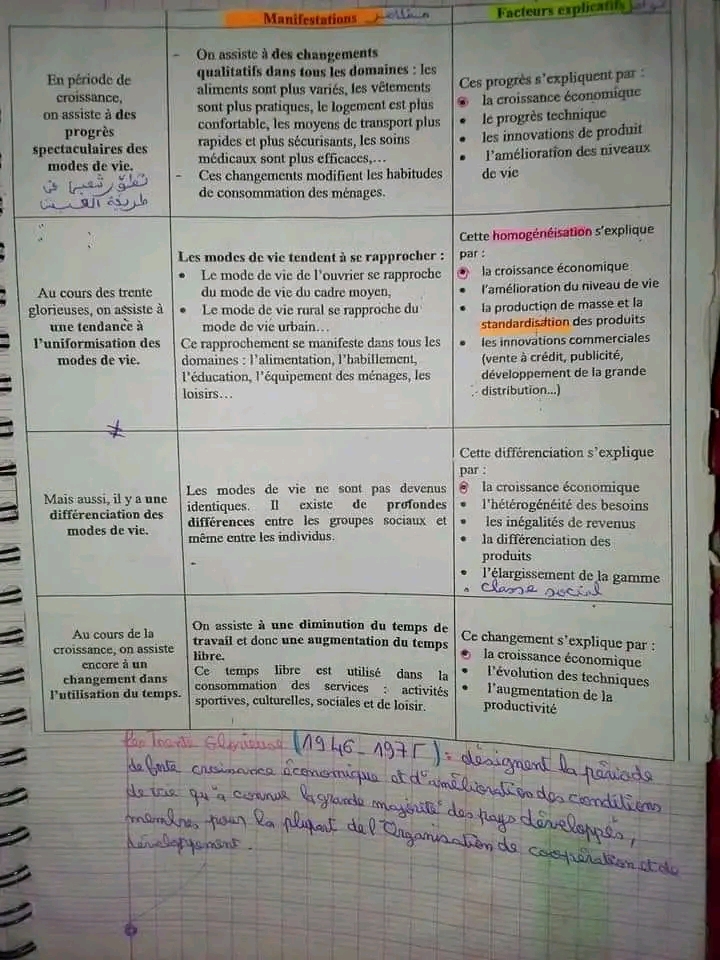 Manifestations
Facteurs explicatifs
En période de
croissance,
on assiste à des
progrès
spectaculaires des
modes de vie.
- On assiste à des changements
qualitatifs dans tous les domaines : les
aliments sont plus variés, les vêtements
sont plus pratiques, le logement est plus
confortable, les moyens de transport plus
rapides et plus sécurisants, les soins
médicaux sont plus efficaces,…
- Ces changements modifient les habitudes
de consommation des ménages.
Ces progrès s'expliquent par :
• la croissance économique
• le progrès technique
• les innovations de produit
• l'amélioration des niveaux
de vie
Au cours des trente
glorieuses, on assiste à
une tendance à
l'uniformisation des
modes de vie.
≠
Les modes de vie tendent à se rapprocher :
• Le mode de vie de l'ouvrier se rapproche
du mode de vie du cadre moyen,
• Le mode de vie rural se rapproche du
mode de vie urbain…
Ce rapprochement se manifeste dans tous les
domaines : l'alimentation, l'habillement,
l'éducation, l'équipement des ménages, les
loisirs…
Cette homogénéisation s'explique
par :
• la croissance économique
• l'amélioration du niveau de vie
• la production de masse et la
standardisation des produits
• les innovations commerciales
(vente à crédit, publicité,
développement de la grande
distribution…)
Mais aussi, il y a une
différenciation des
modes de vie.
Les modes de vie ne sont pas devenus
identiques. Il existe de profondes
différences entre les groupes sociaux et
même entre les individus.
-
Cette différenciation s'explique
par :
• la croissance économique
• l'hétérogénéité des besoins
• les inégalités de revenus
• la différenciation des
produits
• l'élargissement de la gamme
• classe social
Au cours de la
croissance, on assiste
encore à un
changement dans
l'utilisation du temps.
On assiste à une diminution du temps de
travail et donc une augmentation du temps
libre.
Ce temps libre est utilisé dans la
consommation des services : activités
sportives, culturelles, sociales et de loisir.
Ce changement s'explique par :
• la croissance économique
• l'évolution des techniques
• l'augmentation de la
productivité
Les Trente Glorieuse (1946-1975) : désignent la période
de forte croissance économique et d'amélioration des conditions
de vie qu'a connue la grande majorité des pays développés,
membres pour la plupart de l'Organisation de coopération et de
développement.